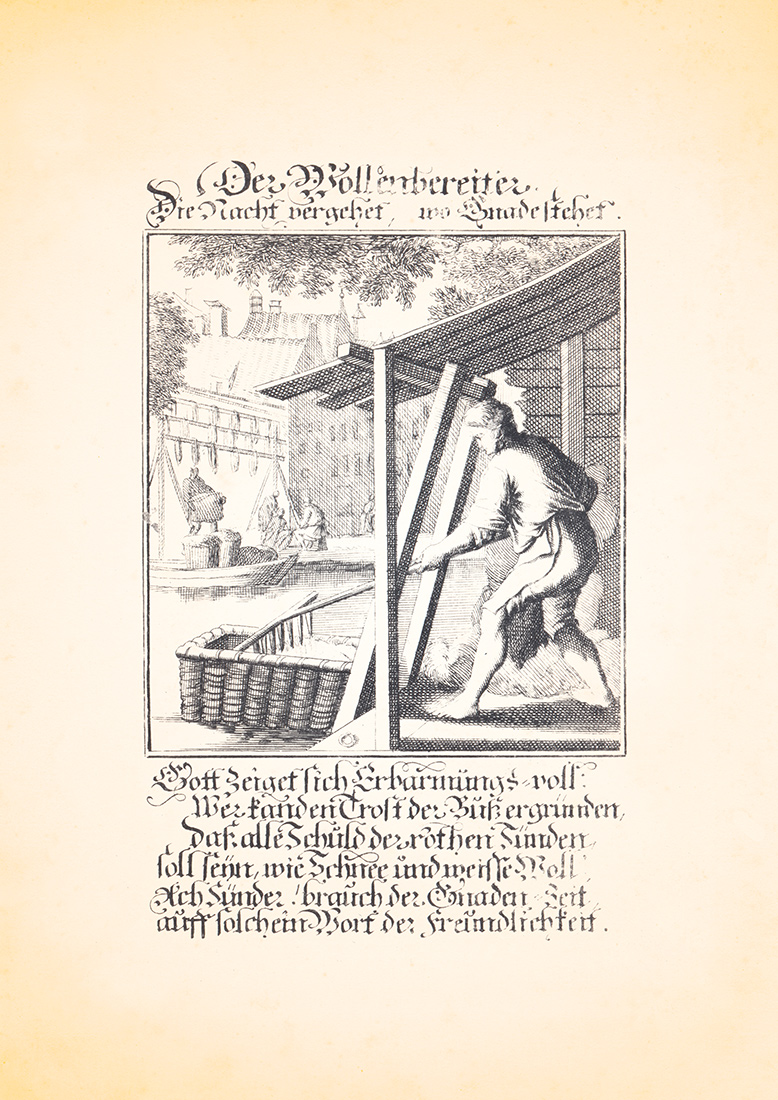 Der Wollenbereiter.
Die Nacht vergehet, wo Gnade stehet.
Gott zeiget sich Erbarmungs-voll:
Wer kan den Trost der Buß ergründen,
daß alle Schuld der rothen Sünden,
soll seyn, wie Schnee und weisse Woll.
Ach Sünder! brauch der Gnaden-Zeit,
auff solch ein Wort der Freundlichkeit.